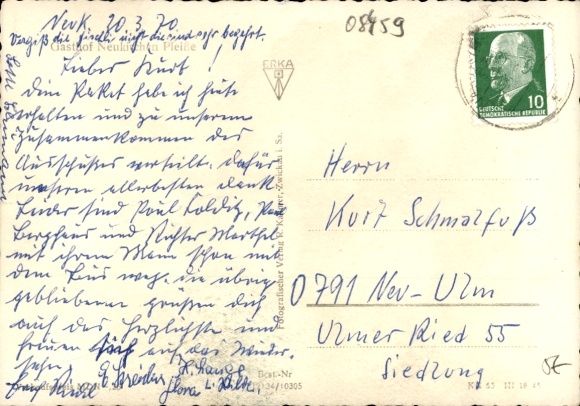 Neuk. 20.3.70
Vergiß die nicht die sind sehr begehrt.
Gasthof Neukirchen Pleiße
Lieber Kurt!
Dein Paket hab ich heute
erhalten und zu unserem
Zusammenkommen des
Ausschußes verteilt. dafür
unseren allerbesten dank
Leider sind Paul Colditz,
Berghaus und Richter Marthel
mit ihrem Mann schon mit
dem Bus weg. die übrig
gebliebenen grüßen dich
auf das Herzlichste und
freuen sich auf das Wieder-
sehn.
ERKA
Fotografischer Verlag R. Kallmer, Zwickau i. Sa.
Best.-Nr
34/10305
08459
DEUTSCHE
DEMOKRATISCHE REPUBLIK
10
Herrn
Kurt Schmalfuß
0791 Neu-Ulm
Ulmer Ried 55
Siedlung